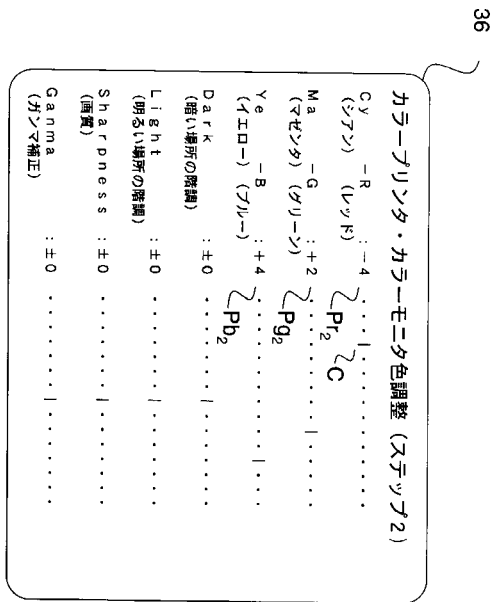 36
カラープリンタ・カラーモニタ色調整（ステップ2）
Cy －R ：－4 ・・・｜・・・・・・・・・
（シアン）（レッド）
Pr2
C
Ma －G ：＋2 ・・・・・・・・｜・・・・
（マゼンタ）（グリーン）
Pg2
Ye －B ：＋4 ・・・・・・・・・・｜・・
（イエロー）（ブルー）
Pb2
Dark ：±0 ・・・・・・｜・・・・・・
（暗い場所の階調）
Light ：±0 ・・・・・・｜・・・・・・
（明るい場所の階調）
Sharpness ：±0 ・・・・・・｜・・・・・・
（画質）
Ganma ：±0 ・・・・・・｜・・・・・・
（ガンマ補正）